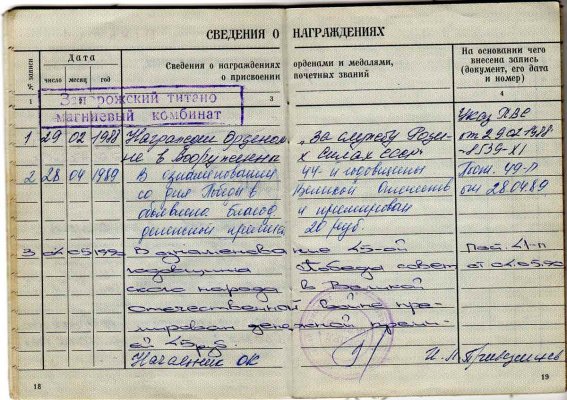 СВЕДЕНИЯ О НАГРАЖДЕНИЯХ
№ записи
Дата
число месяц год
Сведения о награждениях орденами и медалями,
о присвоении почетных званий
На основании чего
внесена запись
(документ, его дата
и номер)
1 2 3 4
Запорожский титано
магниевый комбинат
1 29 02 1988 Награжден Орденом „За службу Роди- Указ ПВС
не в Вооруженных Силах СССР от 29.02.1988
2 28 04 1989 В ознаменовании 44-й годовщины Пост. 49-П
со дня Победы в Великой Отечеств от 28.04.89
объявлена благод. и премирован
20 руб.
3 04 05 1990 В ознаменование 45-ой Пост. 41-п
годовщины Победы совет от 04.05.90
ского народа в Великой
Отечественной Войне пре-
мирован денежной преми-
ей 45 руб.
Начальник ОК
18
19